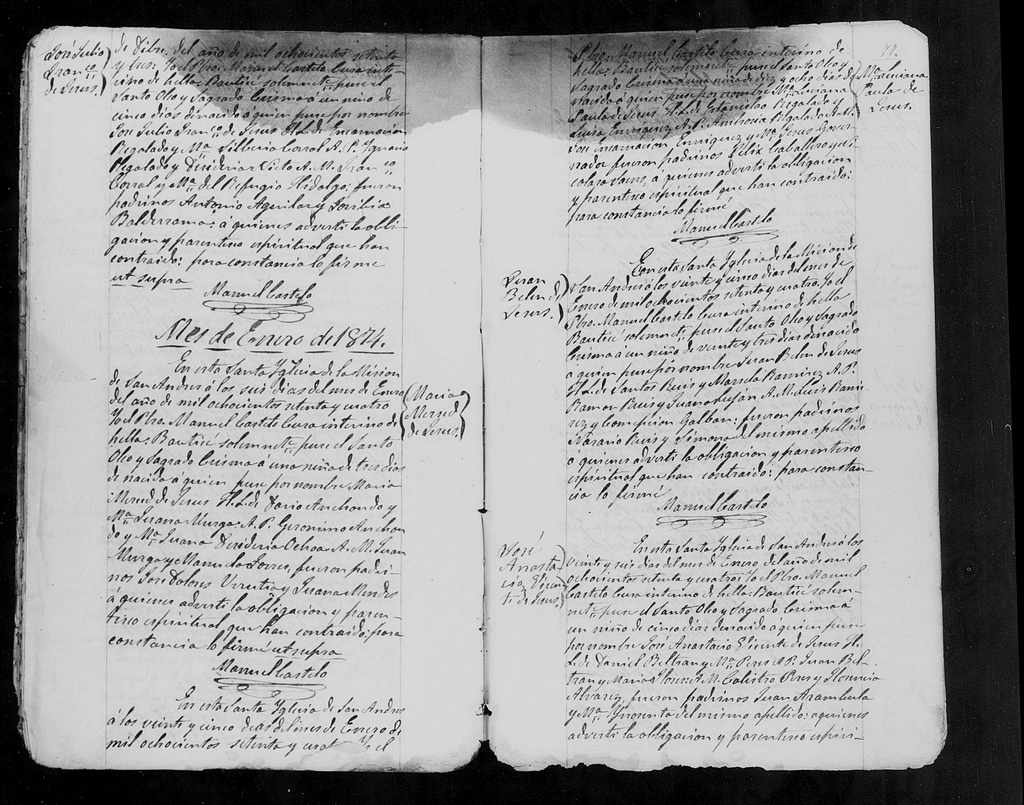 José Julio
Franco.
de Jesus.
de Dibre. del año de mil ochocientos setenta
y tres. Yo el Pbro. Manuel Castelo Cura inte-
rino de hella. Bautisé solemnte. puse el
Santo Oleo y Sagrado Crisma á un niño de
cinco dias de nacido á quien puse por nombre
José Julio Franco. de Jesus H.L. de Encarnacion
Regalado y Ma. Silberia Corral A.P. Ygnacio
Regalado y Desideria A.M. Franco.
Corral y Ma. del Refugio Hidalgo: fueron
padrinos Antonio Aguilar y
Balderrama: á quienes advertí la obli-
gacion y parentesco espiritual que han
contraido: para constancia lo firmé
ut supra
Manuel Castelo
Mes de Enero de 1874.
En esta Santa Yglecia de la Mision
de San Andres á los seis dias del mes de Enero
del año de mil ochocientos setenta y cuatro
Yo el Pbro. Manuel Castelo Cura interino de
hella. Bautisé solemnete. puse el Santo
Oleo y Sagrado Crisma á una niña de tres dias
de nacida á quien puse por nombre Maria
Merced de Jesus H.L. de Dario Anchondo y
Ma. Susana Murga. A.P. Geronimo Anchon-
do y Ma. Juana Desideria Ochoa A.M. Juan
Murga y Manuela Torres, fueron padri-
nos José Dolores Urrutia y Juana Mendes
á quienes advertí la obligacion y paren-
tesco espiritual que han contraido: para
constancia lo firmé ut supra
Manuel Castelo
Maria
Merced
de Jesus.
En esta Santa Yglecia de San Andres
á los veinte y cinco dias del mes de Enero de
mil ochocientos setenta y cuat Yo el
71.
Pbro. Manuel Castelo Cura interino de
hella. Bautisé solemnete. puse el Santo Oleo y
Sagrado Crisma á una niña de diez y ocho dias de
nacida á quien puse por nombre Ma. Luciana
Paula de Jesus H.L. de Estanislao Regalado y
Luisa Enriquez A.P. Ambrosio Regalado A.M.
José Encarnacion Enriquez y Ma. Jesus Gover-
nador fueron padrinos Felix Caballero y
Saens, á quienes advertí la obligacion
y parentesco espiritual que han contraido:
para constancia lo firmé
Manuel Castelo
Ma. Luciana
Paula de
Jesus.
En esta Santa Yglecia de la Mision de
San Andres á los veinte y cinco dias del mes de
Enero de mil ochocientos setenta y cuatro. Yo el
Pbro. Manuel Castelo Cura interino de hella
Bautisé solemnete. puse el Santo Oleo y Sagrado
Crisma á un niño de veinte y tres dias de nacido
á quien puse por nombre Juan Belen de Jesus
H.L. de Santos Ruis y Marcela Ramirez A.P.
Ramon Ruis y Juana Lujan A.M. Luis Rami-
rez y Concepcion Galban: fueron padrinos
Nasario Ruis y Simona del mismo apellido
á quienes advertí la obligacion y parentesco
espiritual que han contraido: para constan-
cia lo firmé
Manuel Castelo
Juan
Belen de
Jesus.
En esta Santa Yglecia de San Andres á los
veinte y seis dias del mes de Enero del año de mil
ochocientos setenta y cuatro: Yo el Pbro. Manuel
Castelo Cura interino de hella. Bautisé solem-
nete. puse el Santo Oleo y Sagrado Crisma á
un niño de cinco dias de nacido á quien puse
por nombre José Anastacio Vicente de Jesus H.
L. de Daniel Beltran y Ma. Peres A.P. Juan Bel-
tran y Maria Flores A.M. Calistro Peres y Florencia
Alvarez, fueron padrinos Juan Arambula
y Ma. Ynosenta del mismo apellido: á quienes
advertí la obligacion y parentesco espiri-
José
Anasta-
cio Vicen-
te de Jesus